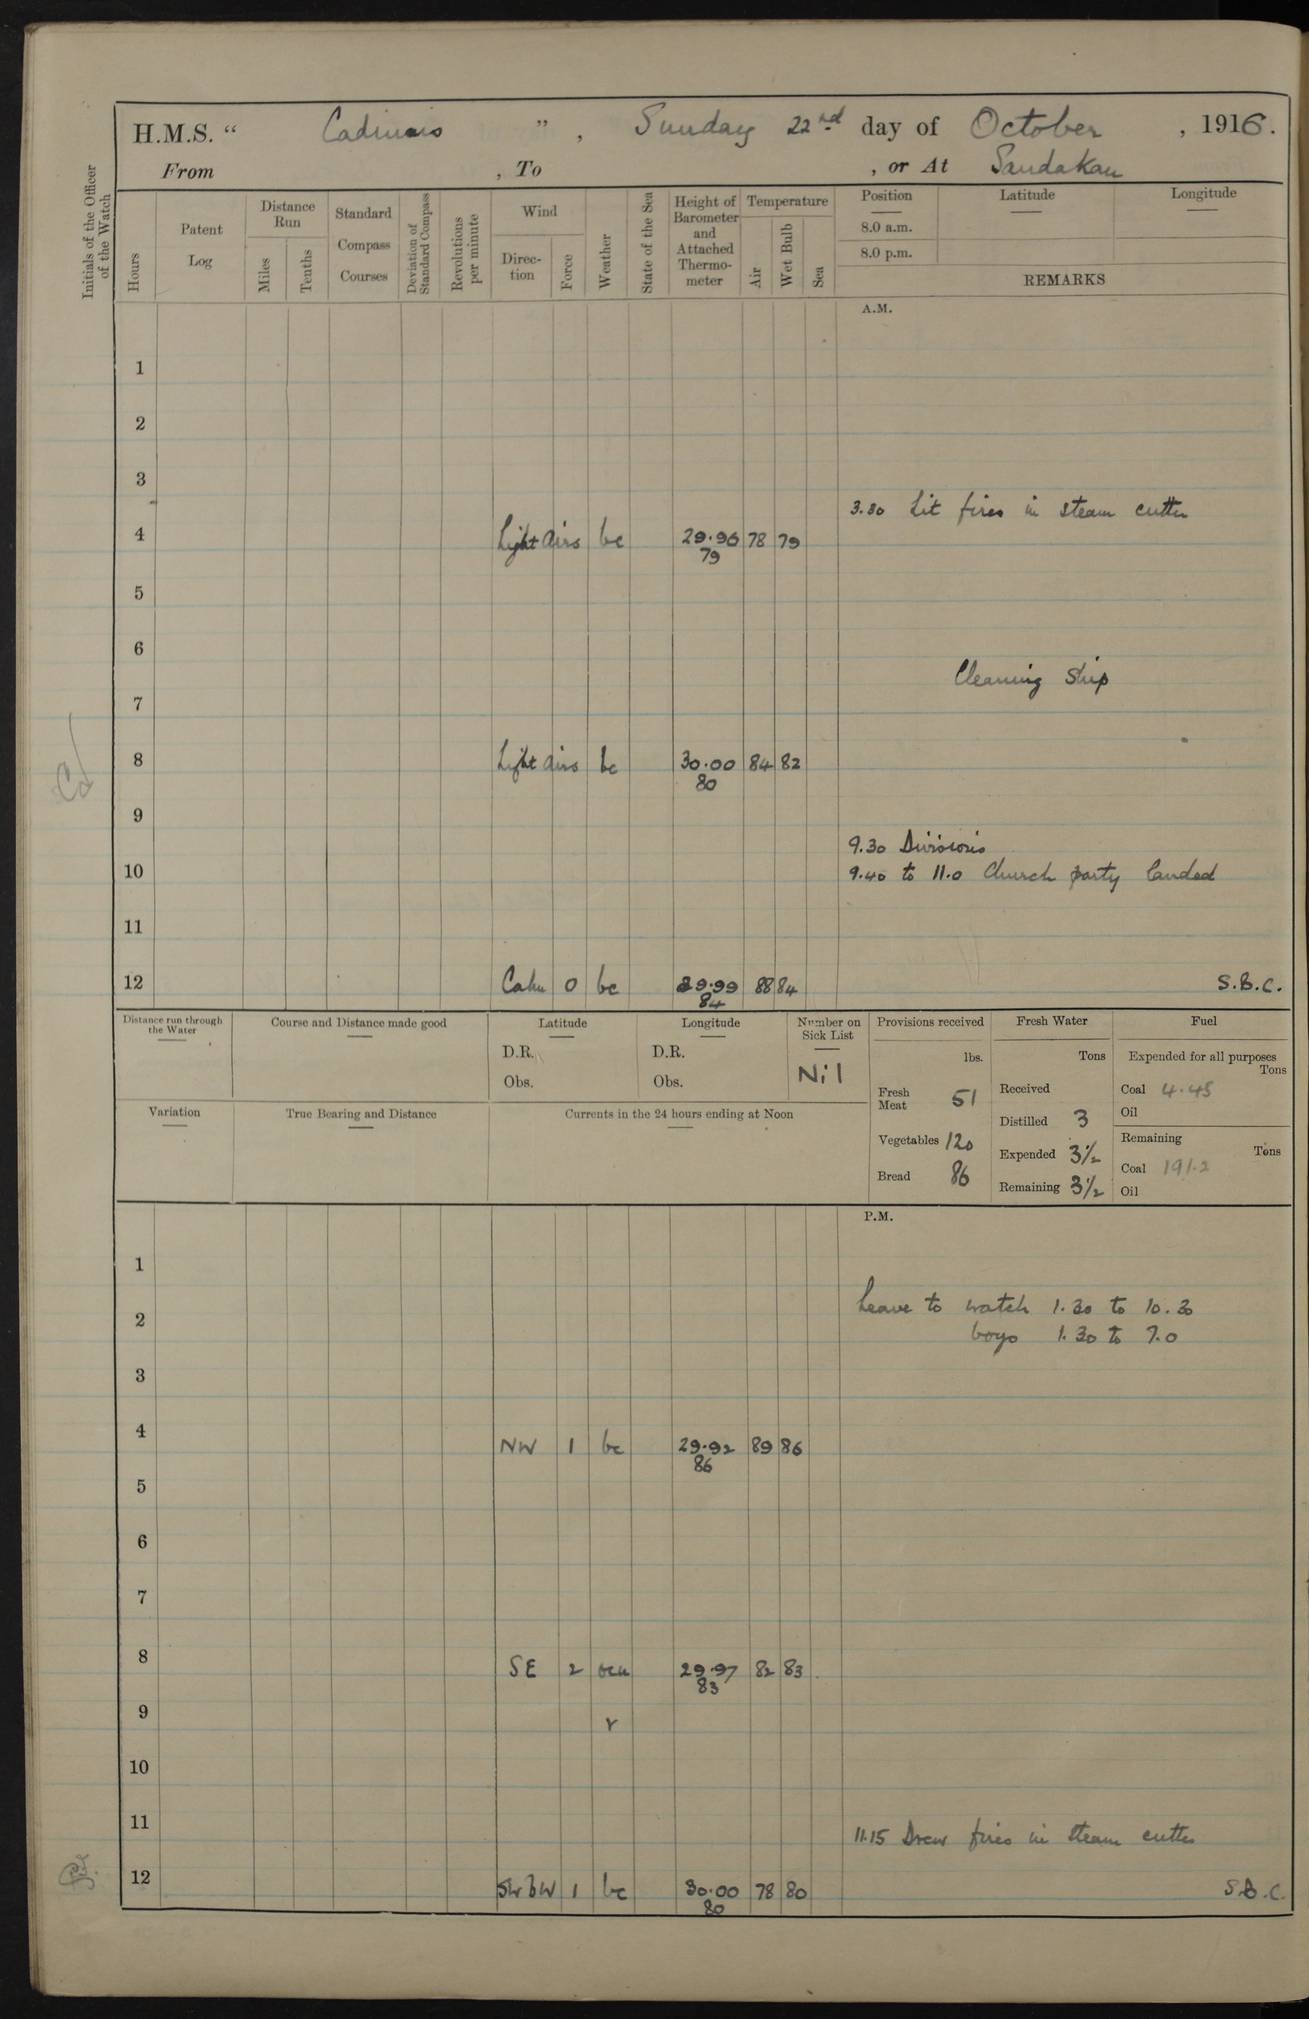 H.M.S. “ Cadmus ” , Sunday 22nd day of October , 1916.
From , To , or At Sandakan
Initials of the Officer of the Watch
Hours
Patent Log
Distance Run
Miles
Tenths
Standard Compass Courses
Deviation of Standard Compass
Revolutions per minute
Wind
Direction
Force
Weather
State of the Sea
Height of Barometer and Attached Thermometer
Temperature
Air
Wet Bulb
Sea
Position Latitude Longitude
8.0 a.m.
8.0 p.m.
REMARKS
A.M.
1
2
3
3.30 Lit fires in steam cutter
4 Light airs bc 29.96 78 79
79
5
6
Cleaning Ship
7
8 Light airs bc 30.00 84 82
80
9
9.30 Divisions
10 9.40 to 11.0 Church party landed
11
12 Calm 0 bc 29.99 88 84 S.B.C.
84
Distance run through the Water
Course and Distance made good
Latitude
D.R.
Obs.
Longitude
D.R.
Obs.
Number on Sick List
Nil
Provisions received
lbs.
Fresh Meat 51
Vegetables 120
Bread 86
Fresh Water
Tons
Received
Distilled 3
Expended 3½
Remaining 3½
Fuel
Expended for all purposes
Tons
Coal 4.45
Oil
Remaining
Tons
Coal 191.2
Oil
Variation
True Bearing and Distance
Currents in the 24 hours ending at Noon
P.M.
1
Leave to watch 1.30 to 10.30
2 boys 1.30 to 7.0
3
4 NW 1 bc 29.92 89 86
86
5
6
7
8 SE 2 ocu 29.97 82 83
83
9 r
10
11
11.15 Drew fires in steam cutter
12 SWbW 1 bc 30.00 78 80 S.B.C.
80